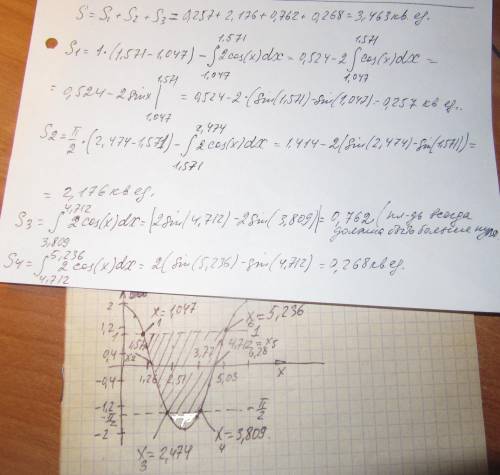 S = S₁ + S₂ + S₃ = 0,257 + 2,176 + 0,762 + 0,268 = 3,463 кв ед.
S₁ = 1·(1,571 - 1,047) - ∫_{1,047}^{1,571} 2cos(x)dx = 0,524 - 2∫_{1,047}^{1,571} cos(x)dx =
= 0,524 - 2sinx |_{1,047}^{1,571} = 0,524 - 2·(sin(1,571) - sin(1,047) = 0,257 кв ед.
S₂ = π/2·(2,474 - 1,571) - ∫_{1,571}^{2,474} 2cos(x)dx = 1.414 - 2(sin(2,474) - sin(1,571)) =
= 2,176 кв ед.
S₃ = ∫_{3,809}^{4,712} 2cos(x)dx = |2sin(4,712) - 2sin(3,809)| = 0,762 (пл-дь всегда
должна быть больше нуля
S₄ = ∫_{4,712}^{5,236} 2cos(x)dx = 2(sin(5,236) - sin(4,712) = 0,268 кв ед.
2
x₁ = 1,047
x₆ = 5,236
1,2
1
1,571
4,712 = x₅
0,4
x₂
3,77
6,28
x
-0,4
1,26
2,51
5,03
-1,2
-π/2
-π/2
-2
x₃ = 2,474
x₄ = 3,809